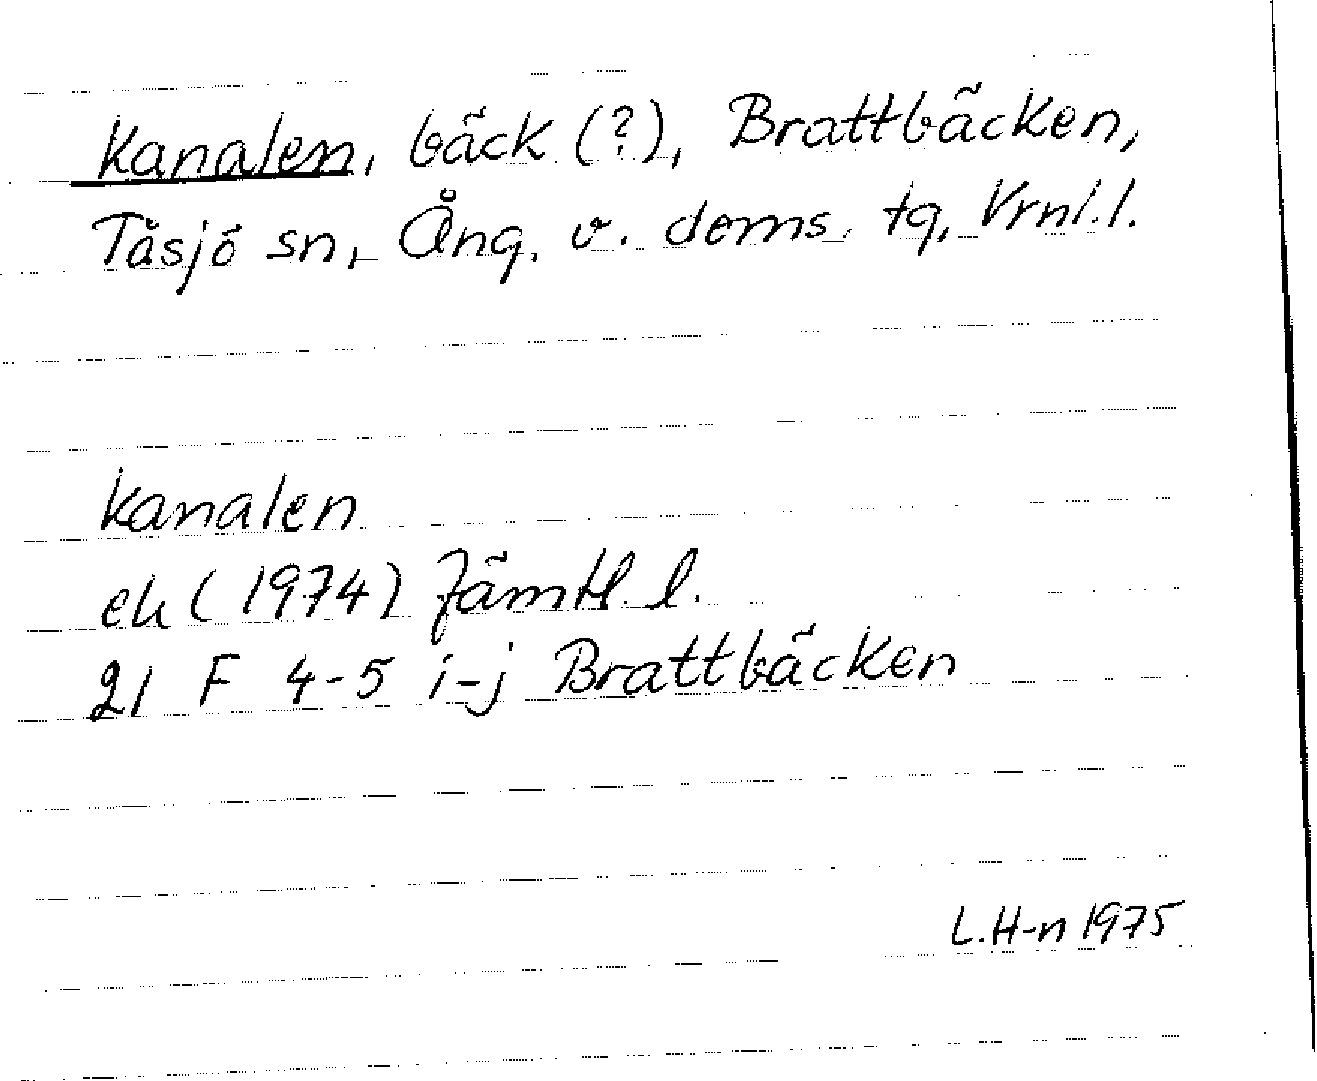 Kanalen, bäck (?), Brattbäcken,
Tåsjö sn, Ång. v. dems. tg, Vrnl. l.
Kanalen
ek (1974) Jämtl. l.
21 F 4-5 i-j Brattbäcken
L.H-n 1975